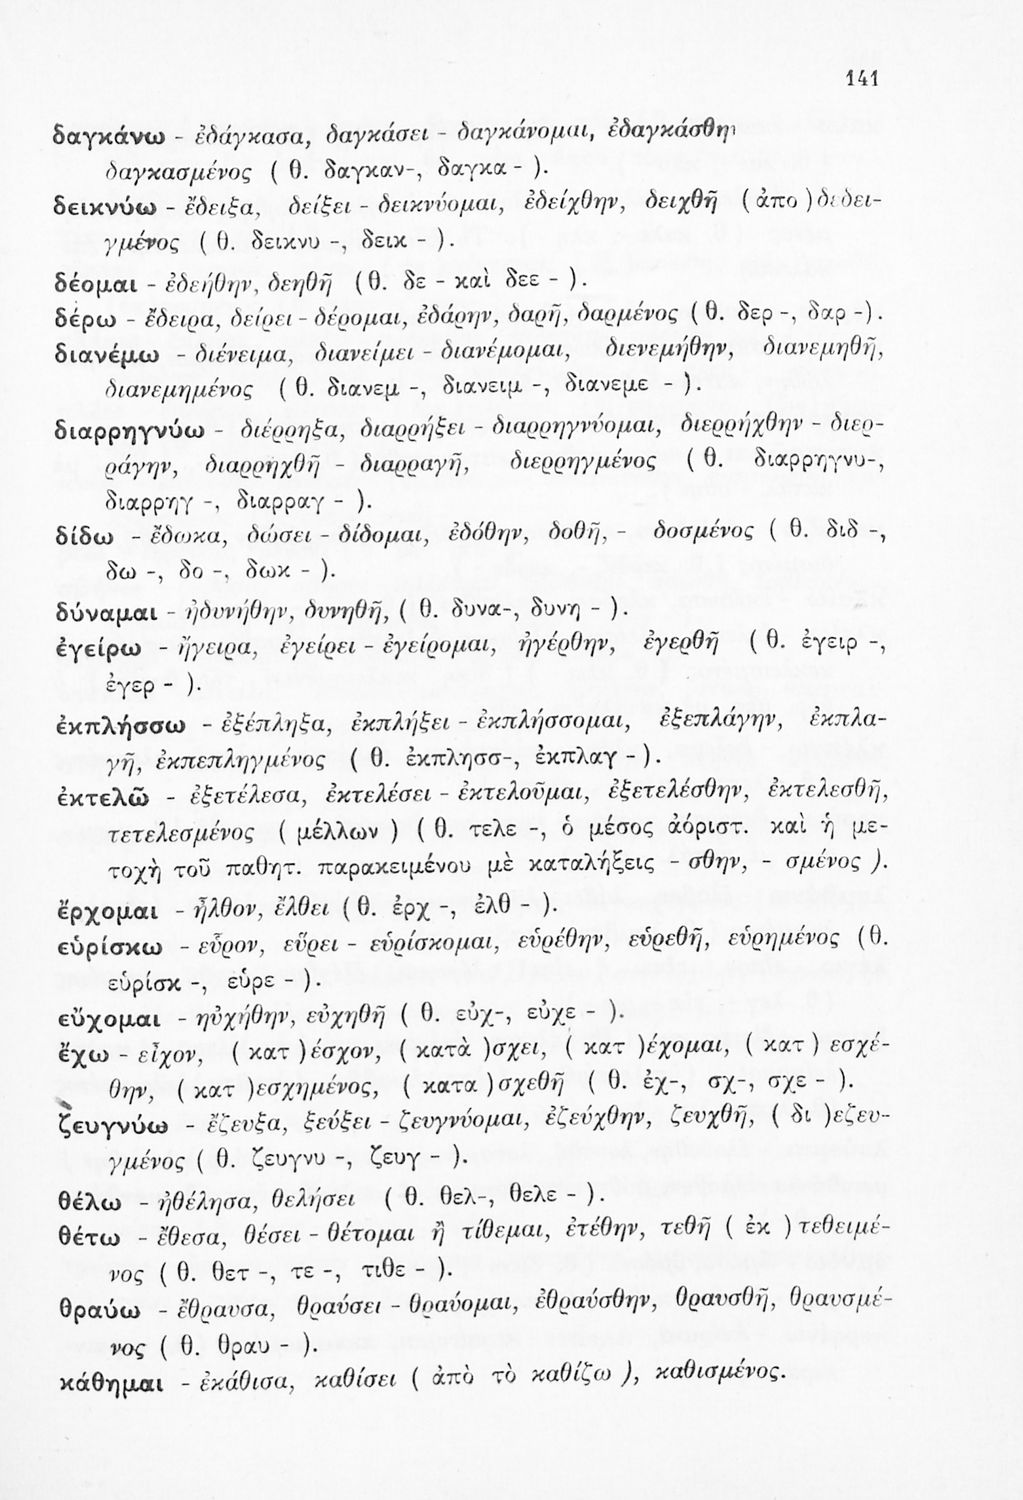 141
δαγκάνω - ἐδάγκασα, δαγκάσει - δαγκάνομαι, ἐδαγκάσθην
δαγκασμένος ( θ. δαγκαν-, δαγκα - ).
δεικνύω - ἔδειξα, δείξει - δεικνύομαι, ἐδείχθην, δειχθῆ (ἀπο )δεδει-
γμένος ( θ. δεικνυ -, δεικ - ).
δέομαι - ἐδεήθην, δεηθῆ (θ. δε - καὶ δεε - ).
δέρω - ἔδειρα, δείρει - δέρομαι, ἐδάρην, δαρῆ, δαρμένος (θ. δερ -, δαρ -).
διανέμω - διένειμα, διανείμει - διανέμομαι, διενεμήθην, διανεμηθῆ,
διανεμημένος ( θ. διανεμ -, διανειμ -, διανεμε - ).
διαρρηγνύω - διέρρηξα, διαρρήξει - διαρρηγνύομαι, διερρήχθην - διερ-
ράγην, διαρρηχθῆ - διαρραγῆ, διερρηγμένος ( θ. διαρρηγνυ-,
διαρρηγ -, διαρραγ - ).
δίδω - ἔδωκα, δώσει - δίδομαι, ἐδόθην, δοθῆ, - δοσμένος ( θ. διδ -,
δω -, δο -, δωκ - ).
δύναμαι - ἠδυνήθην, δυνηθῆ, ( θ. δυνα-, δυνη - ).
ἐγείρω - ἤγειρα, ἐγείρει - ἐγείρομαι, ἠγέρθην, ἐγερθῆ ( θ. ἐγειρ -,
ἐγερ - ).
ἐκπλήσσω - ἐξέπληξα, ἐκπλήξει - ἐκπλήσσομαι, ἐξεπλάγην, ἐκπλα-
γῆ, ἐκπεπληγμένος ( θ. ἐκπλησσ-, ἐκπλαγ - ).
ἐκτελῶ - ἐξετέλεσα, ἐκτελέσει - ἐκτελοῦμαι, ἐξετελέσθην, ἐκτελεσθῆ,
τετελεσμένος ( μέλλων ) ( θ. τελε -, ὁ μέσος ἀόριστ. καὶ ἡ με-
τοχὴ τοῦ παθητ. παρακειμένου μὲ καταλήξεις - σθην, - σμένος ).
ἔρχομαι - ἦλθον, ἔλθει ( θ. ἐρχ -, ἐλθ - ).
εὑρίσκω - εὗρον, εὕρει - εὑρίσκομαι, εὑρέθην, εὑρεθῆ, εὑρημένος (θ.
εὑρίσκ -, εὑρε - ).
εὔχομαι - ηὐχήθην, εὐχηθῆ ( θ. εὐχ-, εὐχε - ).
ἔχω - εἶχον, ( κατ )έσχον, ( κατὰ )σχει, ( κατ )έχομαι, ( κατ ) εσχέ-
θην, ( κατ )εσχημένος, ( κατα )σχεθῆ ( θ. ἐχ-, σχ-, σχε - ).
ζευγνύω - ἔζευξα, ξεύξει - ζευγνύομαι, ἐζεύχθην, ζευχθῆ, ( δι )εζευ-
γμένος ( θ. ζευγνυ -, ζευγ - ).
θέλω - ἠθέλησα, θελήσει ( θ. θελ-, θελε - ).
θέτω - ἔθεσα, θέσει - θέτομαι ἢ τίθεμαι, ἐτέθην, τεθῆ ( ἐκ ) τεθειμέ-
νος ( θ. θετ -, τε -, τιθε - ).
θραύω - ἔθραυσα, θραύσει - θραύομαι, ἐθραύσθην, θραυσθῆ, θραυσμέ-
νος ( θ. θραυ - ).
κάθημαι - ἐκάθισα, καθίσει ( ἀπὸ τὸ καθίζω ), καθισμένος.